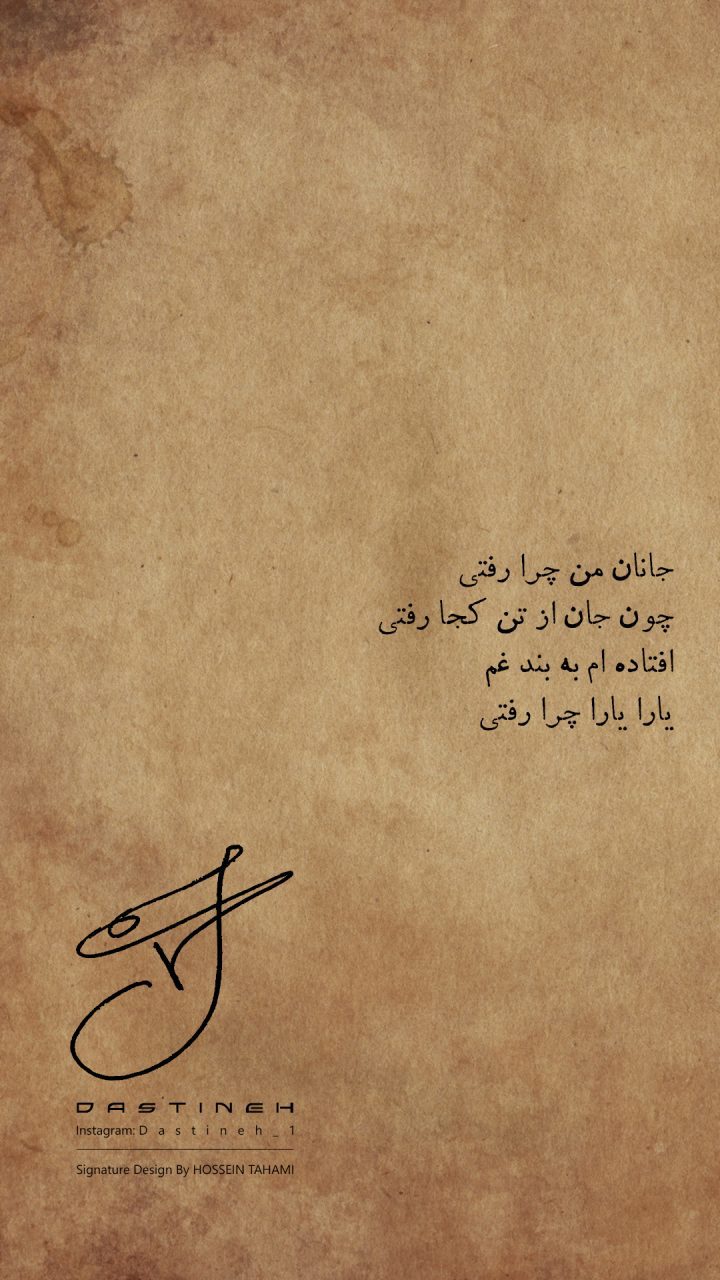 جانان من چرا رفتی
چون جان از تن کجا رفتی
افتاده ام به بند غم
یارا یارا چرا رفتی
DASTINEH
Instagram: Dastineh_1
Signature Design By HOSSEIN TAHAMI